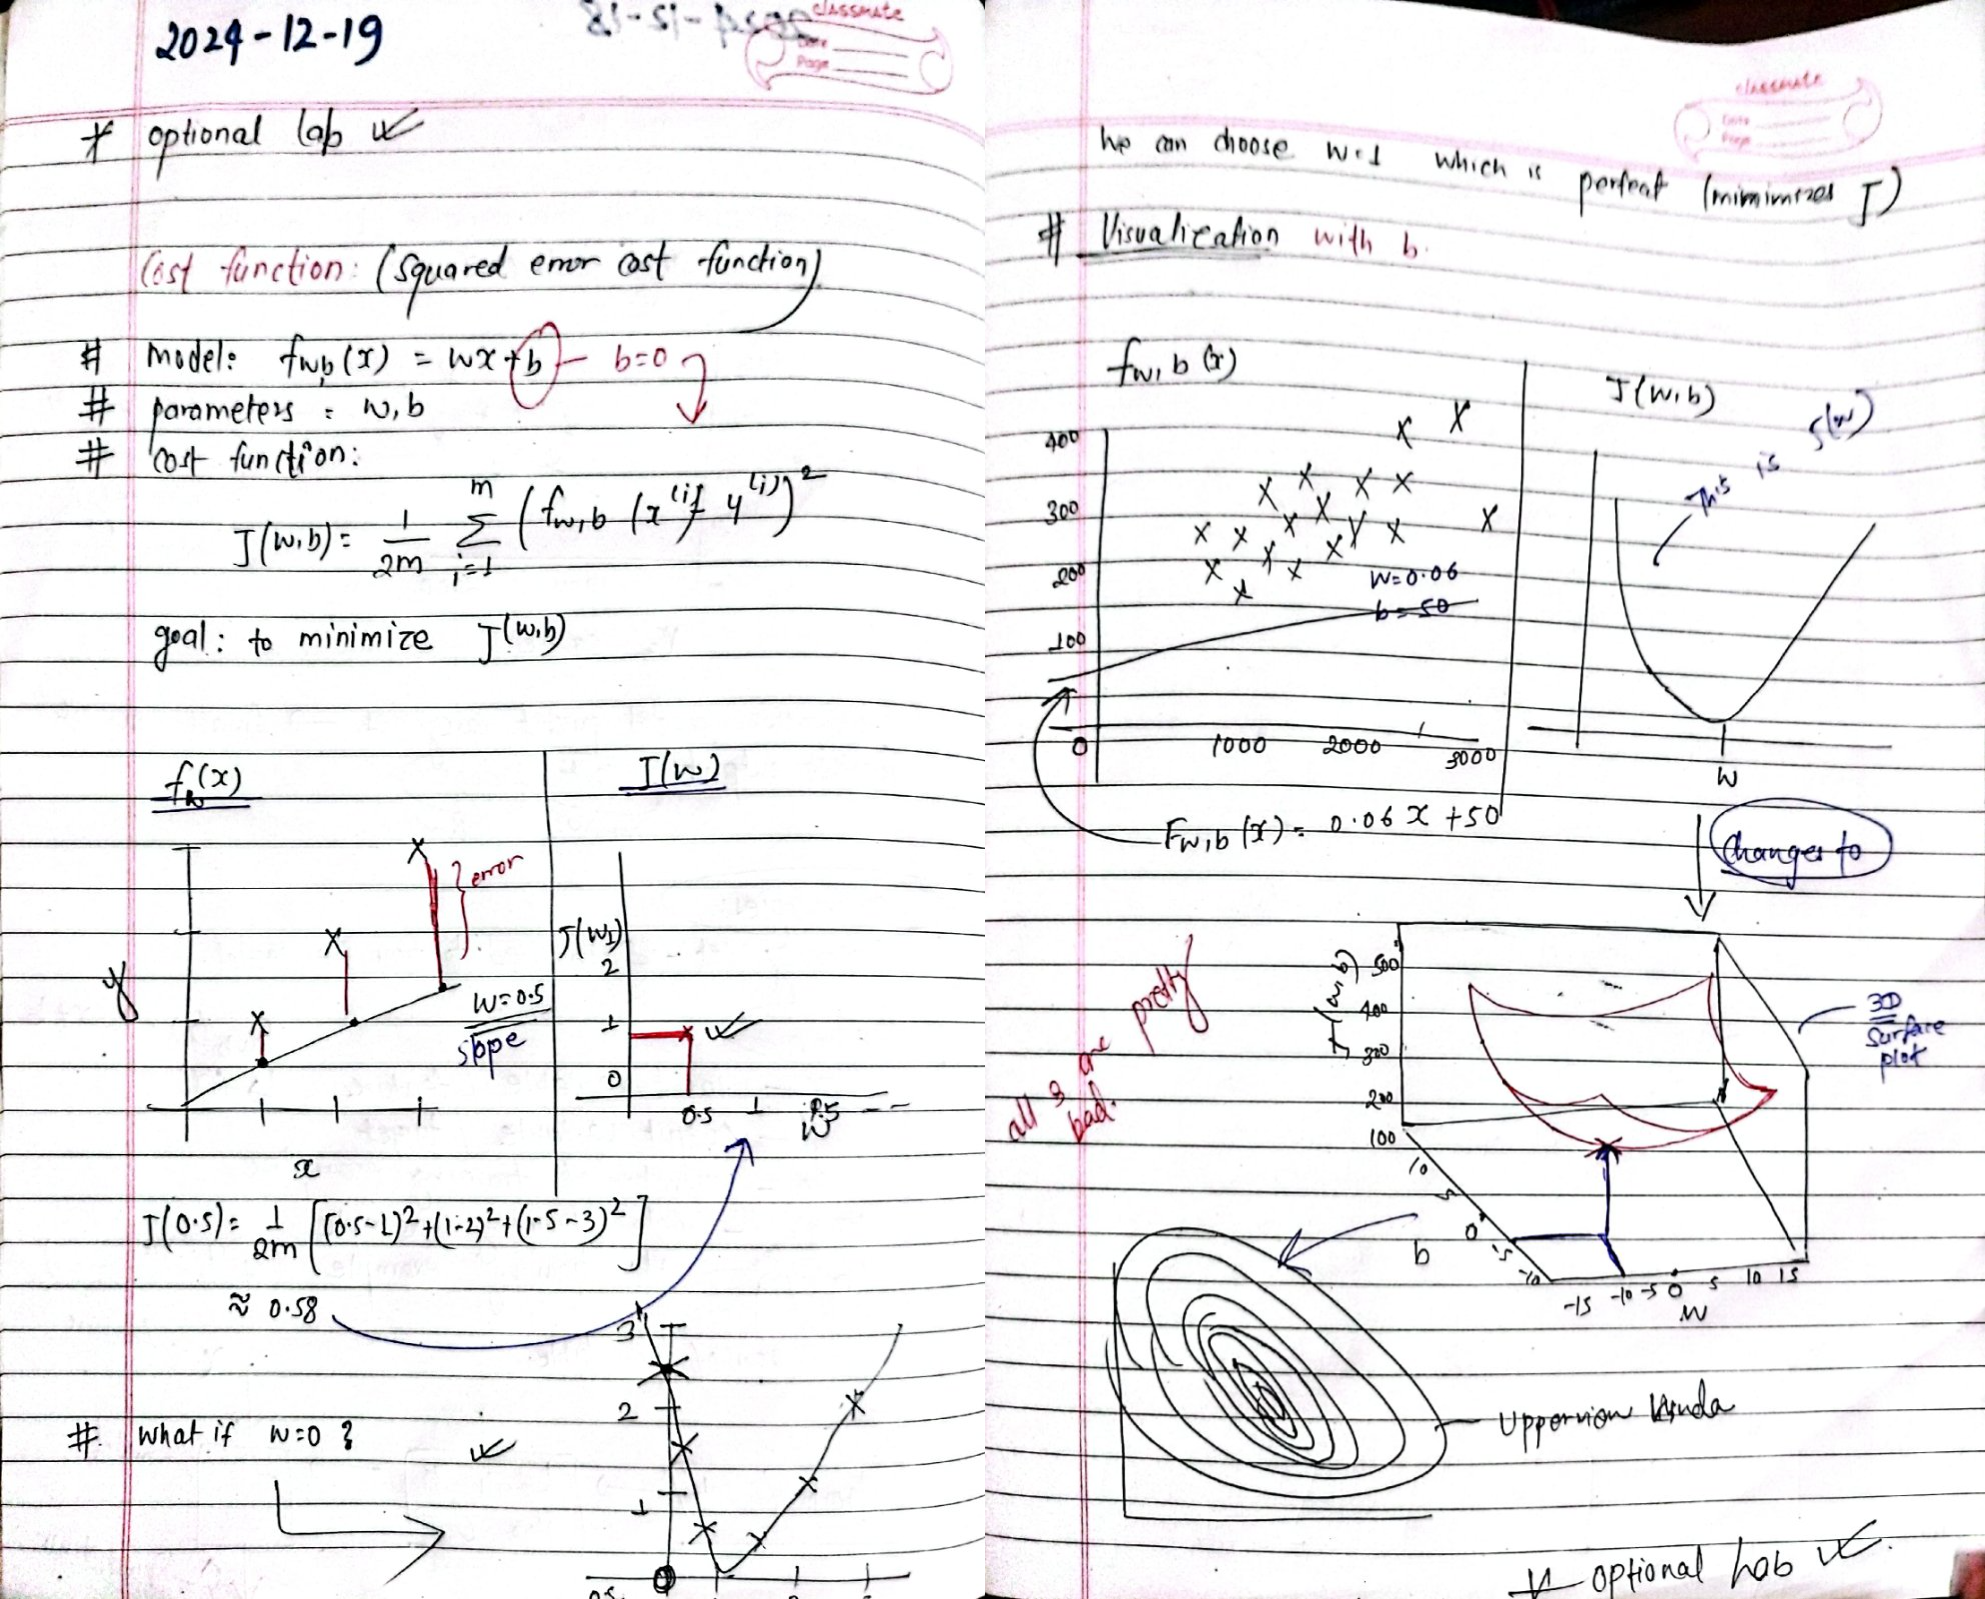 2024-12-19
classmate
Date
Page
* optional lab
Cost function: (squared error cost function)
# model: fw,b (x) = wx+b - b=0
# parameters : w,b
# cost function:
J(w,b) = 1/2m Σ i=1 m (fw,b (x^(i)) - y^(i))^2
goal: to minimize J(w,b)
fw(x)
error
w=0.5
slope
y
x
J(w)
J(w)
2
1
0
0.5 1
w
J(0.5) = 1/2m [(0.5-1)^2+(1-2)^2+(1.5-3)^2]
≈ 0.58
# what if w=0 ?
3
2
1
0
classmate
Date
Page
we can choose w=1 which is perfect (mimimizes J)
# Visualization with b.
fw,b (x)
400
300
200
100
0
1000 2000 3000
w=0.06
b=50
Fw,b (x) = 0.06 x +50
J(w,b)
This is J(w)
w
changes to
all 3 are pretty
bad.
J(w,b)
500
400
300
200
100
10
5
0
-5
-10
b
-15 -10 -5 0 5 10 15
w
3D
Surface
plot
Upperview kinda
* optional Lab